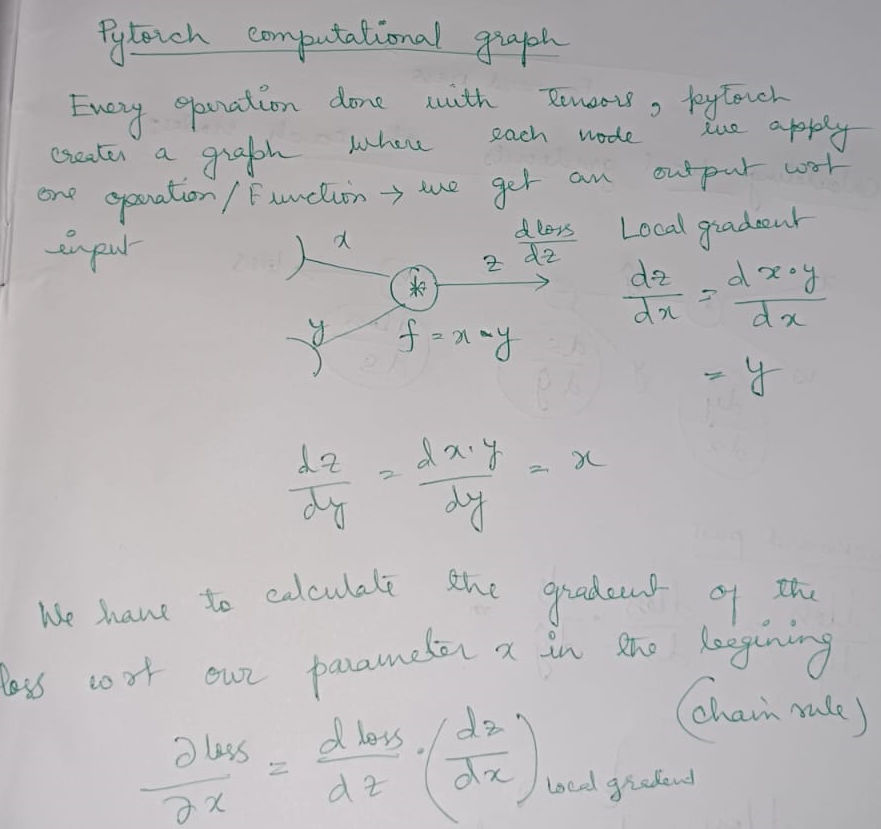 Pytorch computational graph
Every operation done with tensors, pytorch
creates a graph where each node we apply
one operation/Function → we get an output wrt
input
x
y
*
f = x * y
z
dloss/dz
Local gradient
dz/dx = d x·y/dx
= y
dz/dy = d x·y/dy = x
We have to calculate the gradeent of the
loss wrt our parameter x in the begining
(chain rule)
∂loss/∂x = d loss/dz · (dz/dx) local gradend